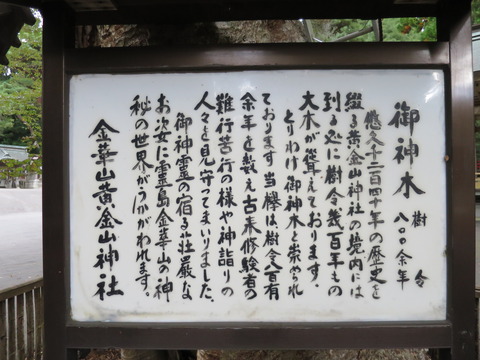 御神木 樹令八〇〇余年
悠久千二百四十年の歴史を
綴る黄金山神社の境内には
到る処に樹令幾百年もの
大木が聳えております。
とりわけ御神木と崇められ
ております当欅は樹令八百有
余年を数え古来修験者の
難行苦行の様や神詣りの
人々を見守ってまいりました。
御神霊の宿る荘厳な
お姿に霊島金華山の神
秘の世界がうかがわれます。
金華山黄金山神社